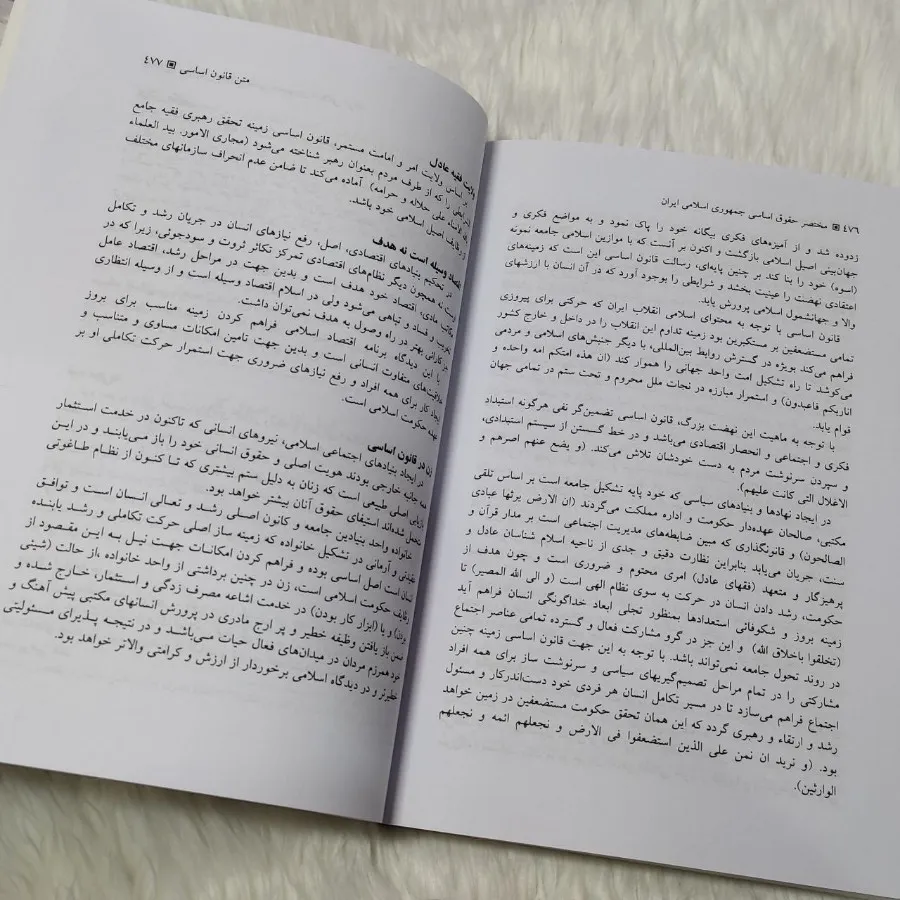 ۴۷۶ ▣ مختصر حقوق اساسی جمهوری اسلامی ایران
زدوده شد و از آمیزه‌های فکری بیگانه خود را پاک نمود و به مواضع فکری و
جهان‌بینی اصیل اسلامی بازگشت و اکنون بر آنست که با موازین اسلامی جامعه نمونه
(اسوه) خود را بنا کند بر چنین پایه‌ای، رسالت قانون اساسی این است که زمینه‌های
اعتقادی نهضت را عینیت بخشد و شرایطی را بوجود آورد که در آن انسان با ارزشهای
والا و جهانشمول اسلامی پرورش یابد.
قانون اساسی با توجه به محتوای اسلامی انقلاب ایران که حرکتی برای پیروزی
تمامی مستضعفین بر مستکبرین بود زمینه تداوم این انقلاب را در داخل و خارج کشور
فراهم می‌کند بویژه در گسترش روابط بین‌المللی، با دیگر جنبش‌های اسلامی و مردمی
می‌کوشد تا راه تشکیل امت واحد جهانی را هموار کند (ان هذه امتکم امه واحده و
اناربکم فاعبدون) و استمرار مبارزه در نجات ملل محروم و تحت ستم در تمامی جهان
قوام یابد.
با توجه به ماهیت این نهضت بزرگ، قانون اساسی تضمین‌گر نفی هرگونه استبداد
فکری و اجتماعی و انحصار اقتصادی می‌باشد و در خط گسستن از سیستم استبدادی،
و سپردن سرنوشت مردم به دست خودشان تلاش می‌کند. (و یضع عنهم اصرهم و
الاغلال التی کانت علیهم).
در ایجاد نهادها و بنیادهای سیاسی که خود پایه تشکیل جامعه است بر اساس تلقی
مکتبی، صالحان عهده‌دار حکومت و اداره مملکت می‌گردند (ان الارض یرثها عبادی
الصالحون) و قانونگذاری که مبین ضابطه‌های مدیریت اجتماعی است بر مدار قرآن و
سنت، جریان می‌یابد بنابراین نظارت دقیق و جدی از ناحیه اسلام شناسان عادل و
پرهیزگار و متعهد (فقهای عادل) امری محتوم و ضروری است و چون هدف از
حکومت، رشد دادن انسان در حرکت به سوی نظام الهی است (و الی الله المصیر) تا
زمینه بروز و شکوفائی استعدادها بمنظور تجلی ابعاد خداگونگی انسان فراهم آید
(تخلقوا باخلاق الله) و این جز در گرو مشارکت فعال و گسترده تمامی عناصر اجتماع
در روند تحول جامعه نمی‌تواند باشد. با توجه به این جهت قانون اساسی زمینه چنین
مشارکتی را در تمام مراحل تصمیم‌گیریهای سیاسی و سرنوشت ساز برای همه افراد
اجتماع فراهم می‌سازد تا در مسیر تکامل انسان هر فردی خود دست‌اندرکار و مسئول
رشد و ارتقاء و رهبری گردد که این همان تحقق حکومت مستضعفین در زمین خواهد
بود. (و نرید ان نمن علی الذین استضعفوا فی الارض و نجعلهم ائمه و نجعلهم
الوارثین).
متن قانون اساسی ▣ ۴۷۷
ولایت فقیه عادل
بر اساس ولایت امر و امامت مستمر، قانون اساسی زمینه تحقق رهبری فقیه جامع
الشرایطی را که از طرف مردم بعنوان رهبر شناخته می‌شود (مجاری الامور. بید العلماء
علی حلاله و حرامه) آماده می‌کند تا ضامن عدم انحراف سازمانهای مختلف
وظایف اصیل اسلامی خود باشد.
اقتصاد وسیله است نه هدف
در تحکیم بنیادهای اقتصادی، اصل، رفع نیازهای انسان در جریان رشد و تکامل
نه همچون دیگر نظام‌های اقتصادی تمرکز تکاثر ثروت و سودجوئی، زیرا که در
مکاتب مادی، اقتصاد خود هدف است و بدین جهت در مراحل رشد، اقتصاد عامل
تخریب و فساد و تباهی می‌شود ولی در اسلام اقتصاد وسیله است و از وسیله انتظاری
کارائی بهتر در راه وصول به هدف نمی‌توان داشت.
با این دیدگاه برنامه اقتصاد اسلامی فراهم کردن زمینه مناسب برای بروز
خلاقیت‌های متفاوت انسانی است و بدین جهت تامین امکانات مساوی و متناسب و
ایجاد کار برای همه افراد و رفع نیازهای ضروری جهت استمرار حرکت تکاملی او بر
عهده حکومت اسلامی است.
زن در قانون اساسی
در ایجاد بنیادهای اجتماعی اسلامی، نیروهای انسانی که تاکنون در خدمت استثمار
همه جانبه خارجی بودند هویت اصلی و حقوق انسانی خود را باز می‌یابند و در این
بازیابی طبیعی است که زنان به دلیل ستم بیشتری که تا کنون از نظام طاغوتی
متحمل شده‌اند استیفای حقوق آنان بیشتر خواهد بود.
خانواده واحد بنیادین جامعه و کانون اصلی رشد و تعالی انسان است و توافق
عقیدتی و آرمانی در تشکیل خانواده که زمینه ساز اصلی حرکت تکاملی و رشد یابنده
انسان است اصل اساسی بوده و فراهم کردن امکانات جهت نیل به این مقصود از
وظایف حکومت اسلامی است، زن در چنین برداشتی از واحد خانواده ،از حالت (شیئی
بودن) و یا (ابزار کار بودن) در خدمت اشاعه مصرف زدگی و استثمار، خارج شده و
ضمن باز یافتن وظیفه خطیر و پر ارج مادری در پرورش انسانهای مکتبی پیش آهنگ و
خود همرزم مردان در میدان‌های فعال حیات می‌باشد و در نتیجه پذیرای مسئولیتی
خطیرتر و در دیدگاه اسلامی برخوردار از ارزش و کرامتی والاتر خواهد بود.